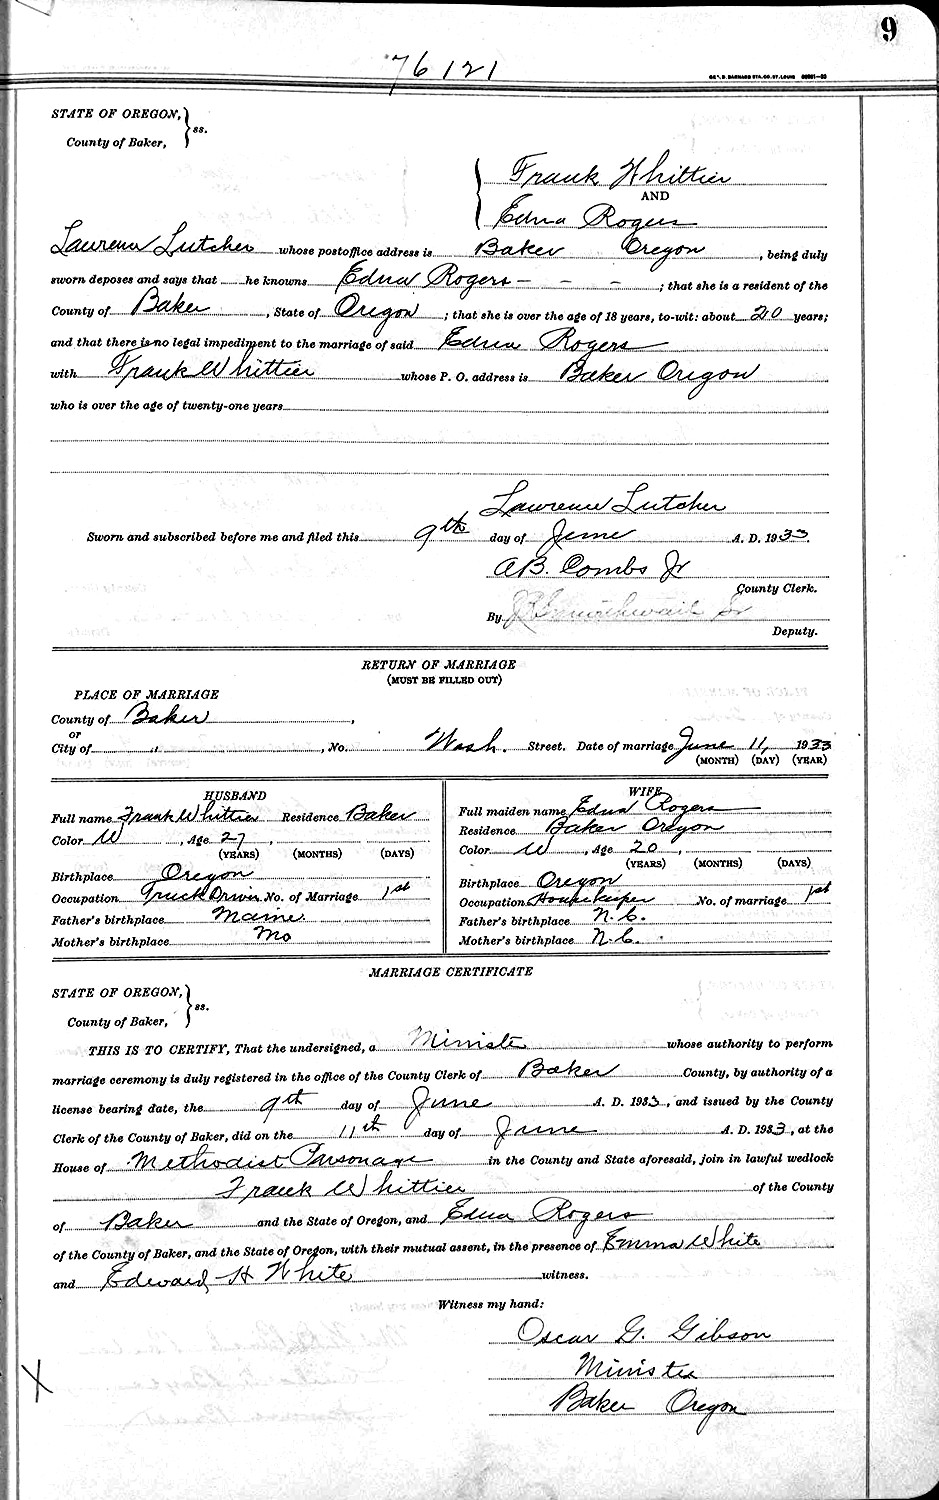 9
76121
STATE OF OREGON, } ss.
County of Baker,
Frank Whittier
AND
Edna Rogers
Lawrence Lutcher whose postoffice address is Baker Oregon, being duly
sworn deposes and says that he knows Edna Rogers - - - ; that she is a resident of the
County of Baker, State of Oregon; that she is over the age of 18 years, to-wit: about 20 years;
and that there is no legal impediment to the marriage of said Edna Rogers
with Frank Whittier whose P. O. address is Baker Oregon
who is over the age of twenty-one years
Lawrence Lutcher
Sworn and subscribed before me and filed this 9th day of June A. D. 1933.
AB. Combs Jr
County Clerk.
By
Deputy.
RETURN OF MARRIAGE
(MUST BE FILLED OUT)
PLACE OF MARRIAGE
County of Baker,
or
City of " , No. Wash. Street. Date of marriage June 11, 1933
(MONTH) (DAY) (YEAR)
HUSBAND
Full name Frank Whittier Residence Baker
Color W, Age 27,
(YEARS) (MONTHS) (DAYS)
Birthplace Oregon
Occupation Truck Driver No. of Marriage 1st
Father's birthplace Maine
Mother's birthplace Mo
WIFE
Full maiden name Edna Rogers
Residence Baker Oregon
Color W, Age 20,
(YEARS) (MONTHS) (DAYS)
Birthplace Oregon
Occupation Housekeeper No. of marriage 1st
Father's birthplace N.C.
Mother's birthplace N.C.
MARRIAGE CERTIFICATE
STATE OF OREGON, } ss.
County of Baker,
THIS IS TO CERTIFY, That the undersigned, a Ministe whose authority to perform
marriage ceremony is duly registered in the office of the County Clerk of Baker County, by authority of a
license bearing date, the 9th day of June A. D. 1933, and issued by the County
Clerk of the County of Baker, did on the 11th day of June A. D. 1933, at the
House of Methodist Parsonage in the County and State aforesaid, join in lawful wedlock
Frank Whittier of the County
of Baker and the State of Oregon, and Edna Rogers
of the County of Baker, and the State of Oregon, with their mutual assent, in the presence of Emma White
and Edward H White witness.
Witness my hand:
Oscar G. Gibson
Minister
Baker Oregon
X